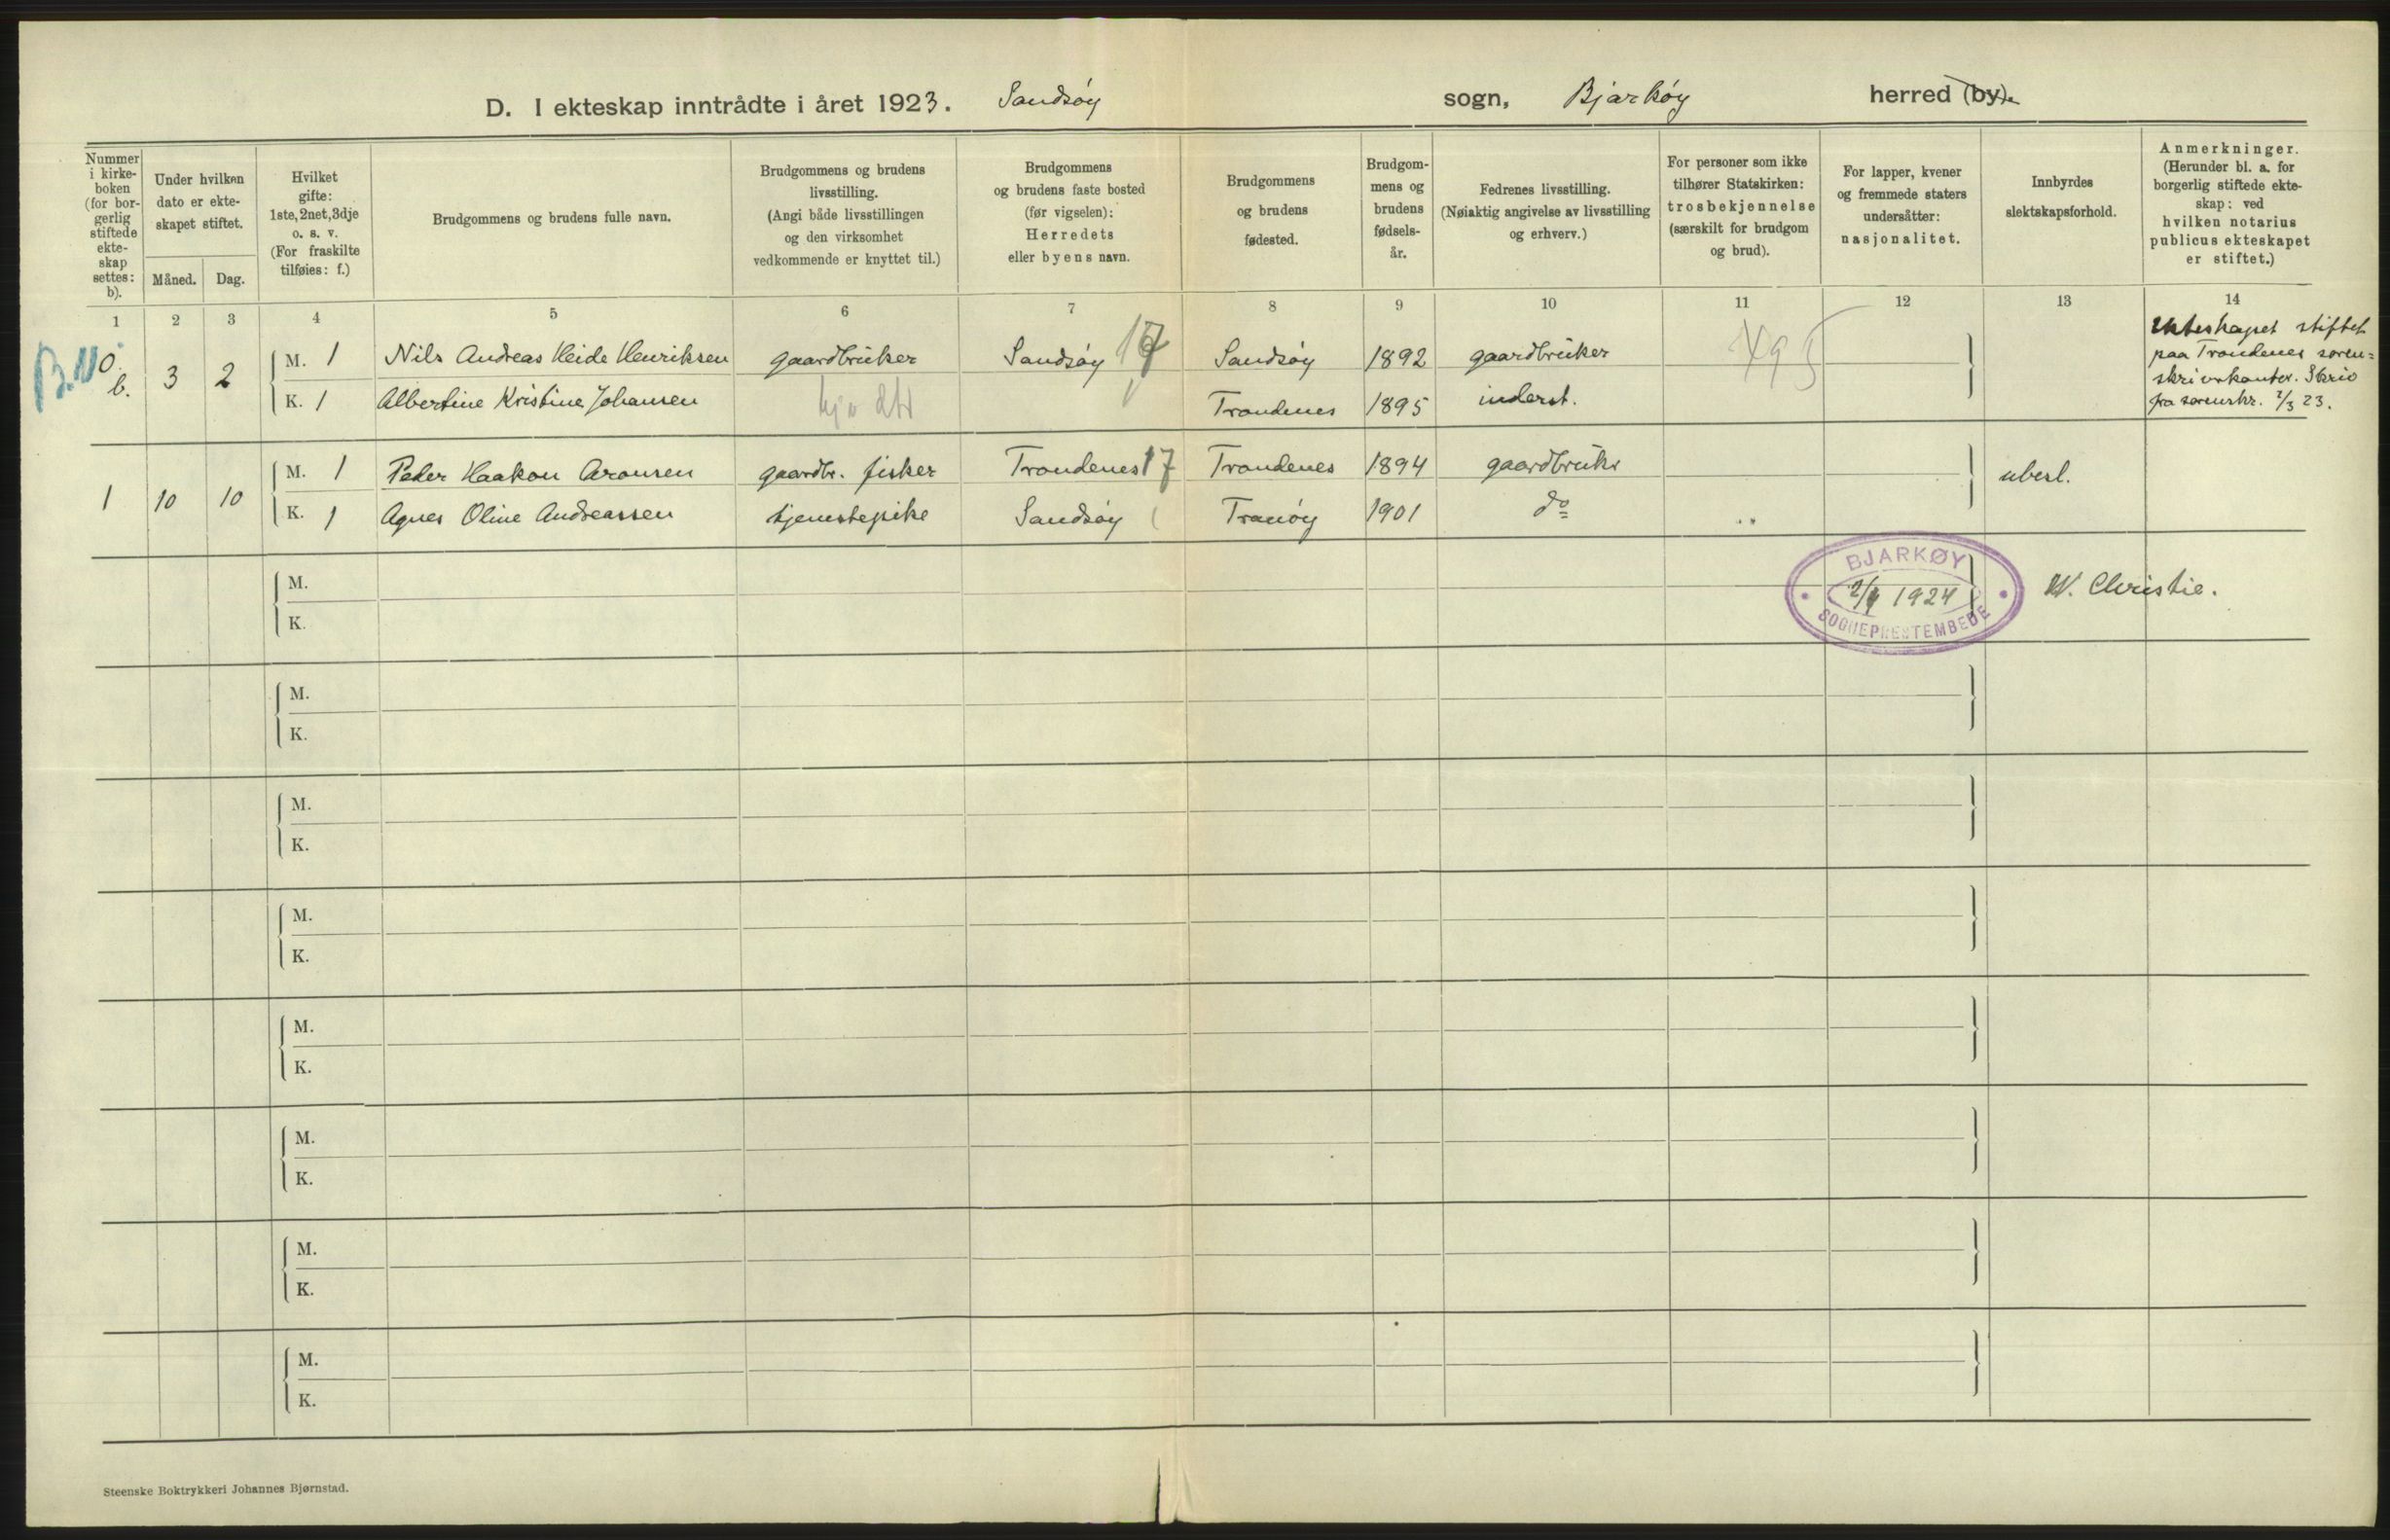 D. I ekteskap inntrådte i året 1923. Sandsøy sogn, Bjarkøy herred (by).
Nummer i kirkeboken (for borgerlig stiftede ekteskap settes: b).
Under hvilken dato er ekteskapet stiftet.
Måned.
Dag.
Hvilket gifte: 1ste, 2net, 3dje o. s. v. (For fraskilte tilføies: f.)
Brudgommens og brudens fulle navn.
Brudgommens og brudens livsstilling. (Angi både livsstillingen og den virksomhet vedkommende er knyttet til.)
Brudgommens og brudens faste bosted (før vigselen): Herredets eller byens navn.
Brudgommens og brudens fødested.
Brudgommens og brudens fødselsår.
Fedrenes livsstilling. (Nøiaktig angivelse av livsstilling og erhverv.)
For personer som ikke tilhører Statskirken: trosbekjennelse (særskilt for brudgom og brud).
For lapper, kvener og fremmede staters undersåtter: nasjonalitet.
Innbyrdes slektskapsforhold.
Anmerkninger. (Herunder bl. a. for borgerlig stiftede ekteskap: ved hvilken notarius publicus ekteskapet er stiftet.)
1 2 3 4 5 6 7 8 9 10 11 12 13 14
b. 3 2 M. 1 Nils Andreas Heide Henriksen gaardbruker Sandsøy 17 Sandsøy 1892 gaardbruker
K. 1 Albertine Kristine Johansen Trondenes 1895 inderst.
Ekteskapet stiftet
paa Trondenes soren=
skriverkontor. Skriv
fra sorenskr. 2/3 23.
1 10 10 M. 1 Peder Haakon Aronsen gaardbr. fisker Trondenes 17 Trondenes 1894 gaardbruker ubesl.
K. 1 Agnes Oline Andreassen tjenestepike Sandsøy Tranøy 1901 do
M.
K.
BJARKØY
1924
SOGNEPRESTEMBEDE
W. Christie.
M.
K.
M.
K.
M.
K.
M.
K.
M.
K.
M.
K.
M.
K.
Steenske Boktrykkeri Johannes Bjørnstad.